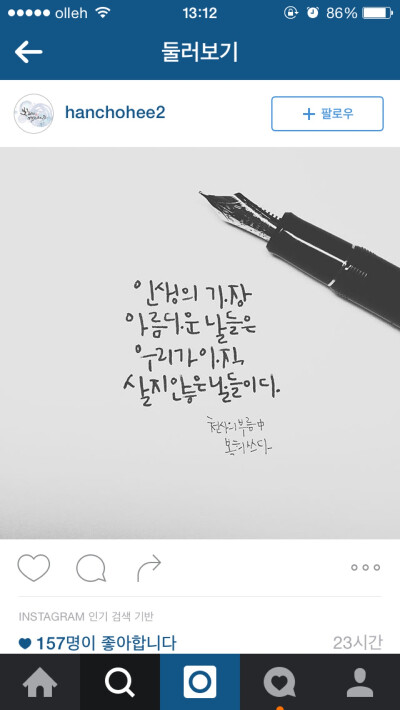 olleh 13:12 86%
둘러보기
hanchohee2 + 팔로우
인생의 가장
아름다운 날들은
우리가 아직
살지 않은 날들이다.
천상의 부름 中
INSTAGRAM 인기 검색 기반
157명이 좋아합니다 23시간